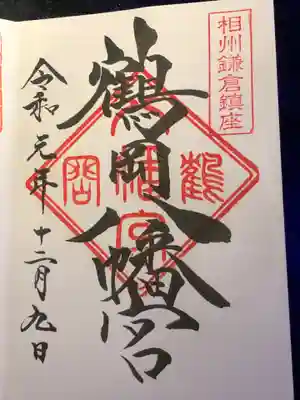 相州鎌倉鎮座
鶴岡八幡宮
令和元年十二月九日